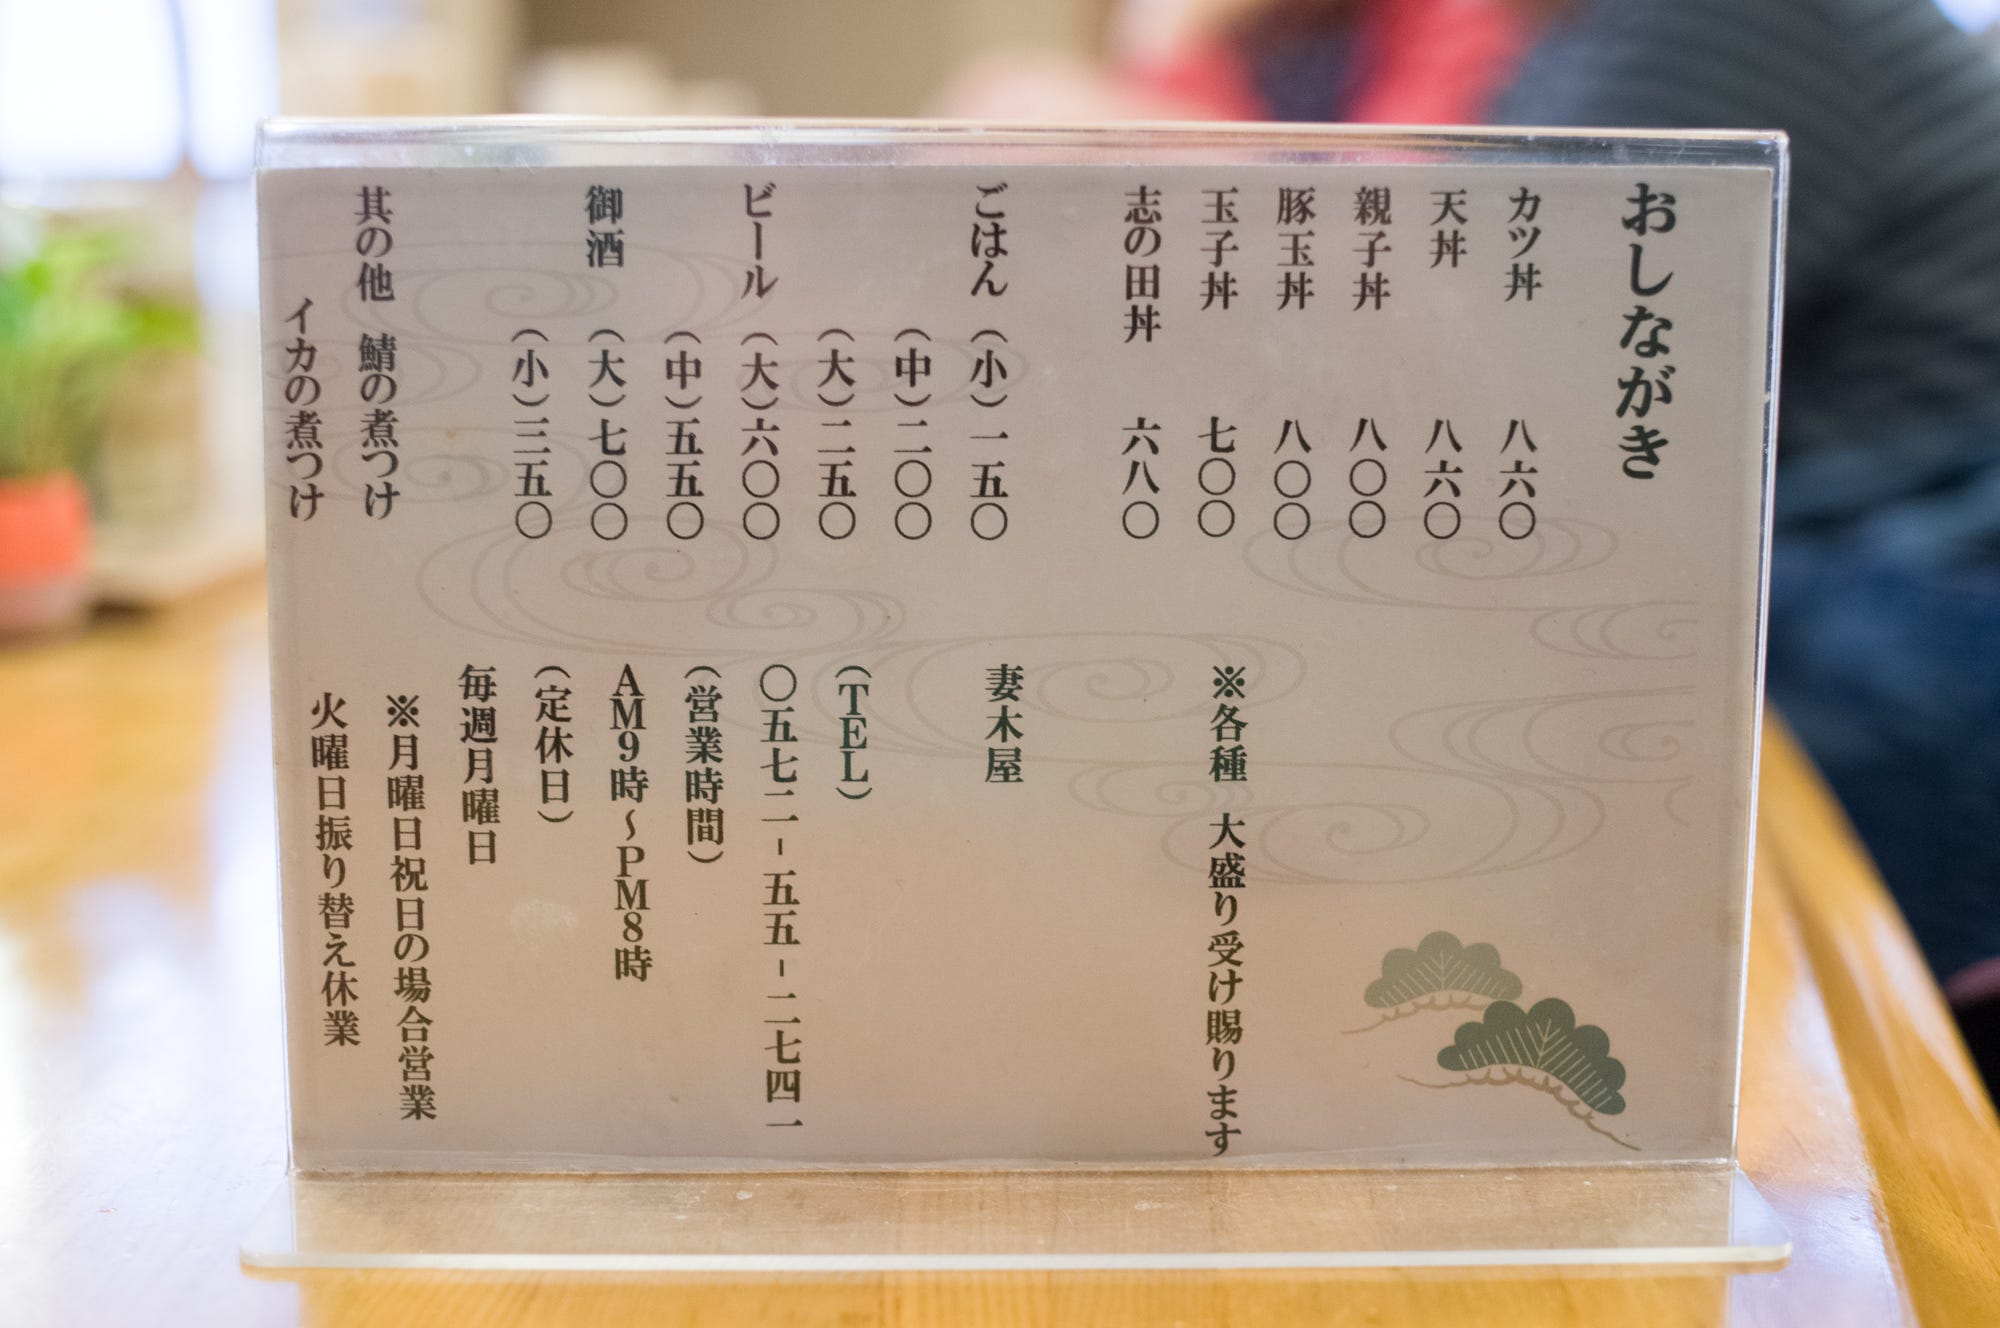 おしながき
カツ丼 八六〇
天丼 八六〇
親子丼 八〇〇
豚玉丼 八〇〇
玉子丼 七〇〇
志の田丼 六八〇
ごはん (小)一五〇
(中)二〇〇
(大)二五〇
ビール (大)六〇〇
(中)五五〇
御酒 (大)七〇〇
(小)三五〇
其の他 鯖の煮つけ
イカの煮つけ
※各種 大盛り受け賜ります
妻木屋
(TEL)
〇五七二-五五-二七四一
(営業時間)
AM9時~PM8時
(定休日)
毎週月曜日
※月曜日祝日の場合営業
火曜日振り替え休業